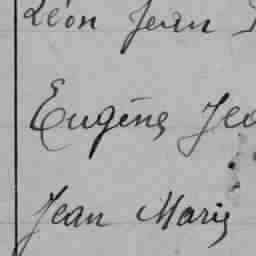 Léon Jean
Eugène Jea
Jean Marie